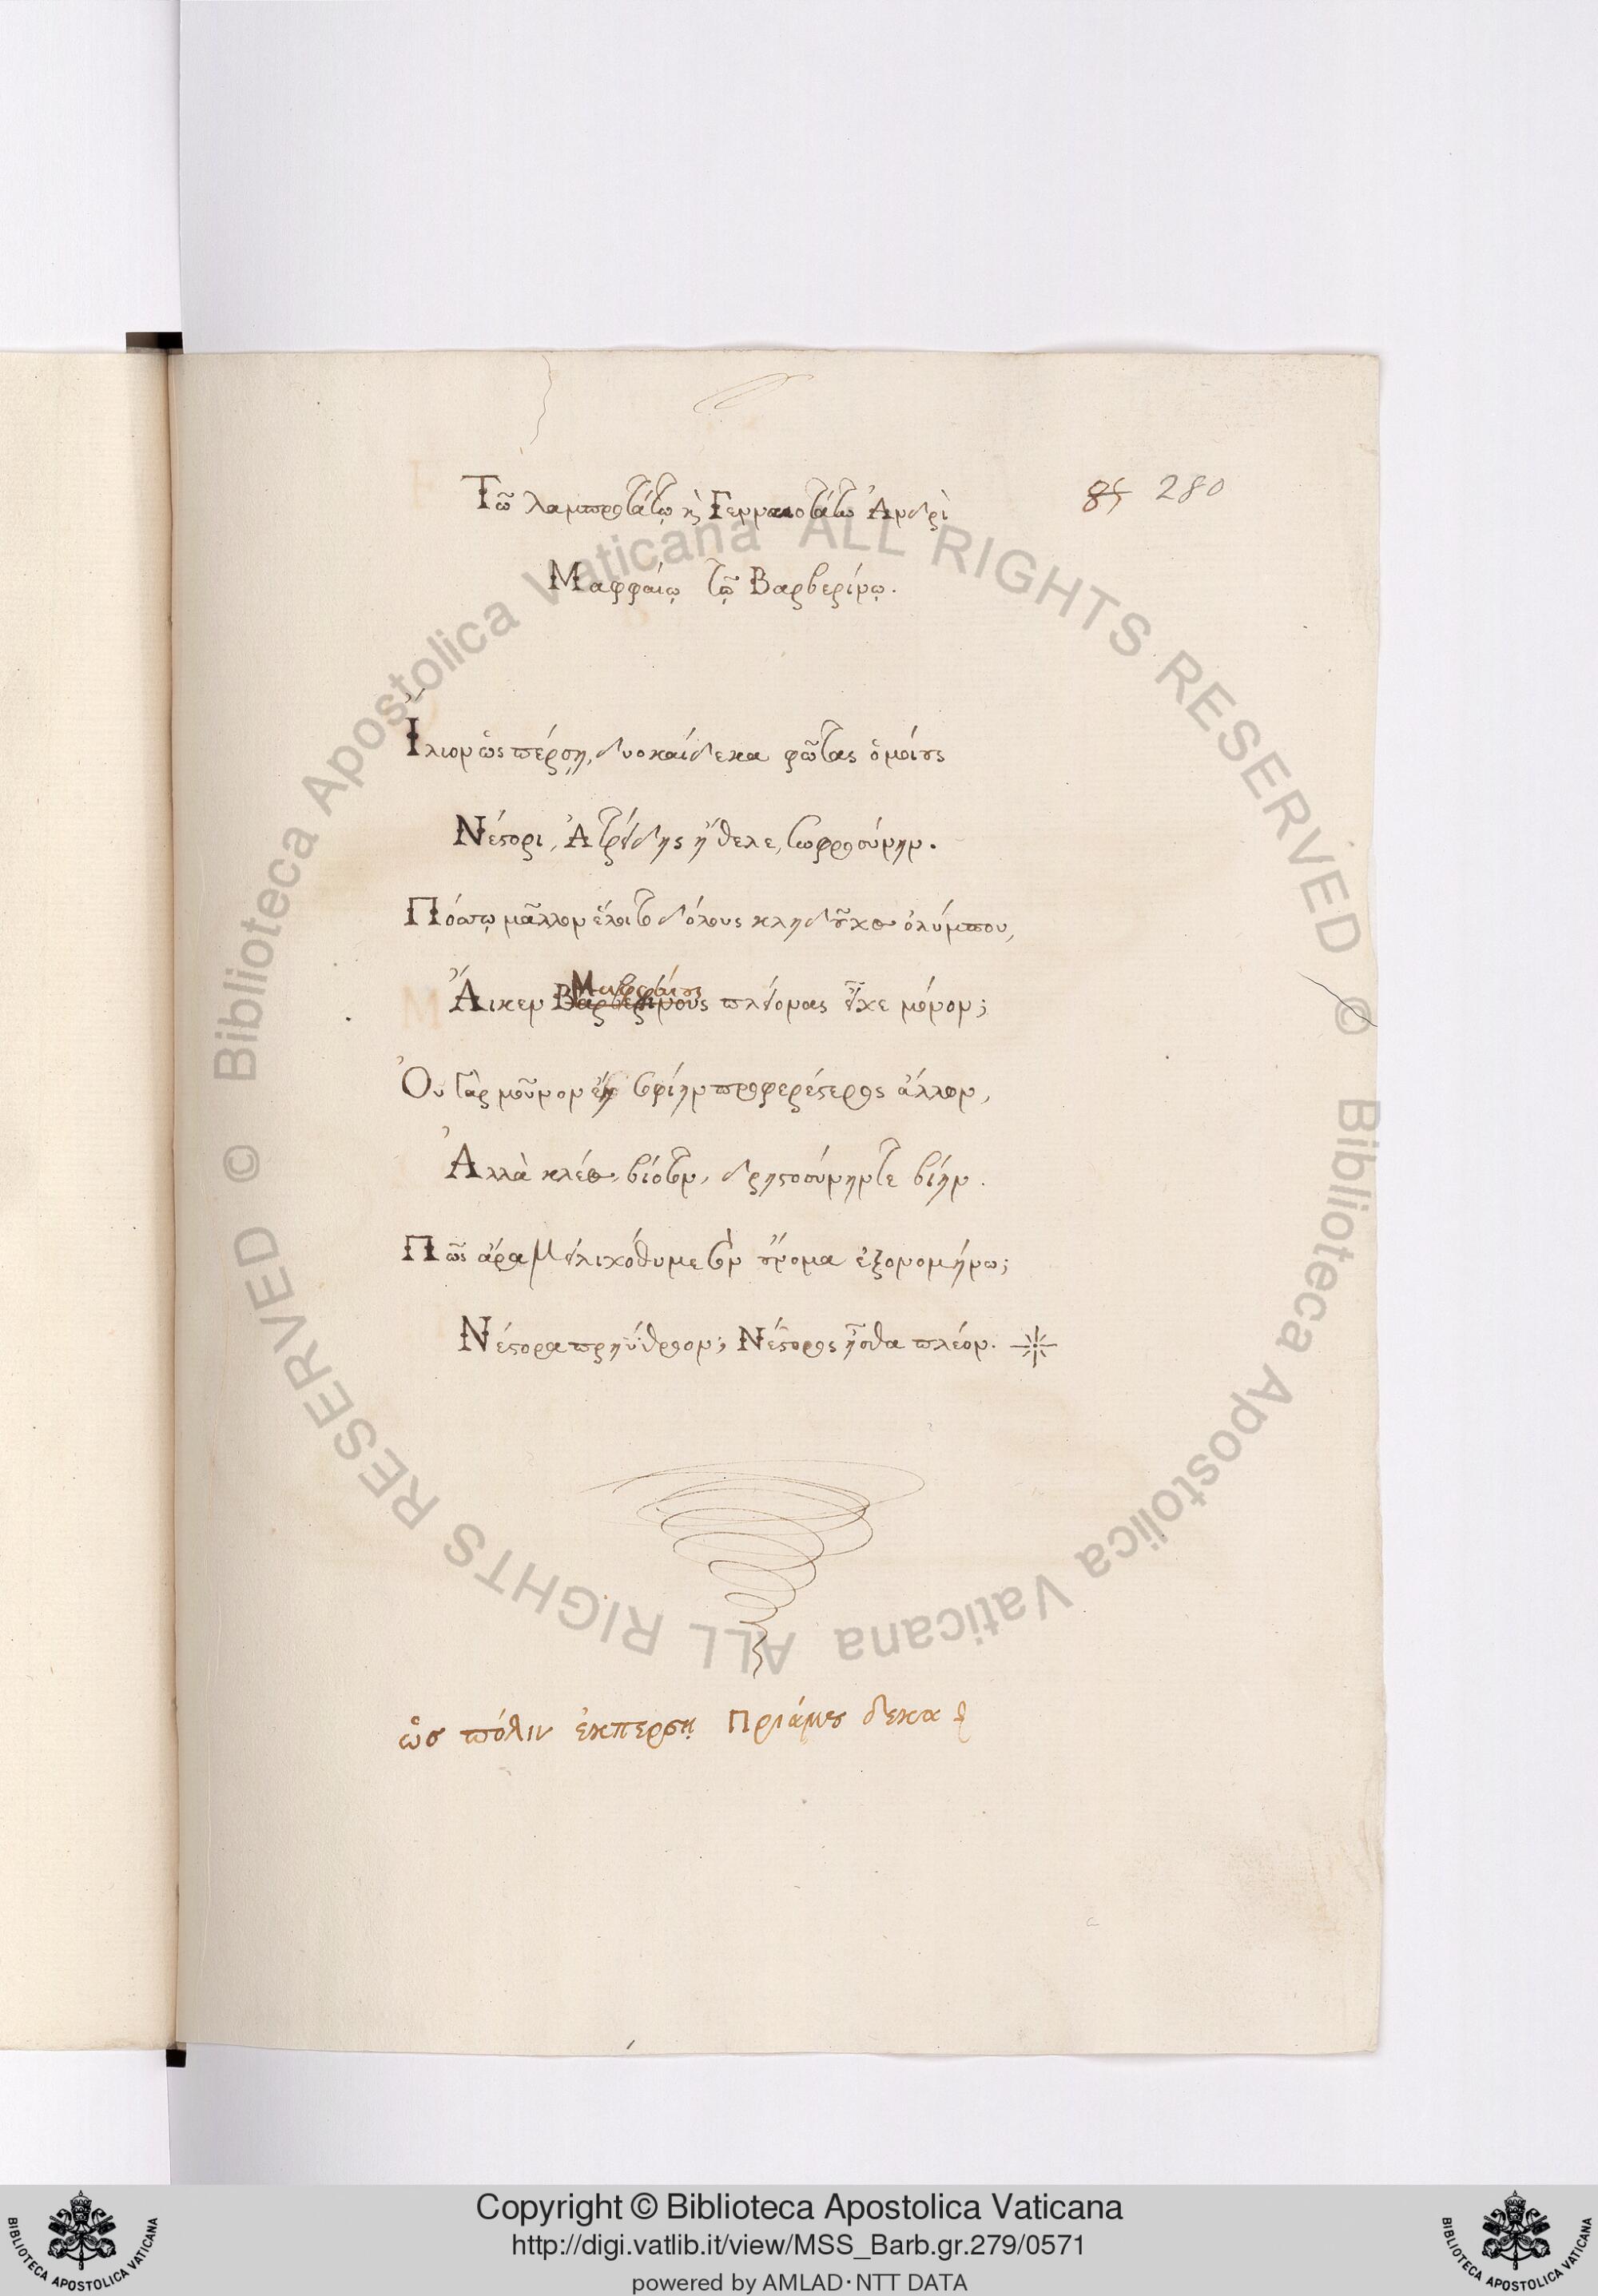 Τῶ λαμπροτάτῳ κ̀ Γενναιοτάτω Ἀνδρὶ
85 280
Μαφφαίῳ τῷ Βαρβερίνῳ.
Ἴλιον ὡς πέρσῃ, δυοκαίδεκα φῶτας ὁμοίους
Νέστορι, Ἀτρείδης ἤθελε, σωφροσύνην.
Πόσῳ μᾶλλον ἕλοιτο δόλους κληδοῦχος ὀλύμπου,
Ἄικεν Βαρβερίνους Μαφφαίους πλείονας εἶχε μόνον;
Ὀυ γὰρ μοῦνον ἔῃ σοφίην προφερέστερος ἄλλων,
Ἀλλὰ κλέος, βίοτον, δρηστοσύνηντε βίην.
Πῶς ἄρα Μειλιχόθυμε τεὸν οὔνομα ἐξονομήνω;
Νέστορα πρηΰθροον; Νέστορος ἦσθα πλέον.
ὡσ πόλιν ἐκπερσῃ Πριάμου δεκα
Copyright © Biblioteca Apostolica Vaticana
http://digi.vatlib.it/view/MSS_Barb.gr.279/0571
powered by AMLAD·NTT DATA
BIBLIOTECA APOSTOLICA VATICANA
BIBLIOTECA APOSTOLICA VATICANA
© Biblioteca Apostolica Vaticana ALL RIGHTS RESERVED
© Biblioteca Apostolica Vaticana ALL RIGHTS RESERVED